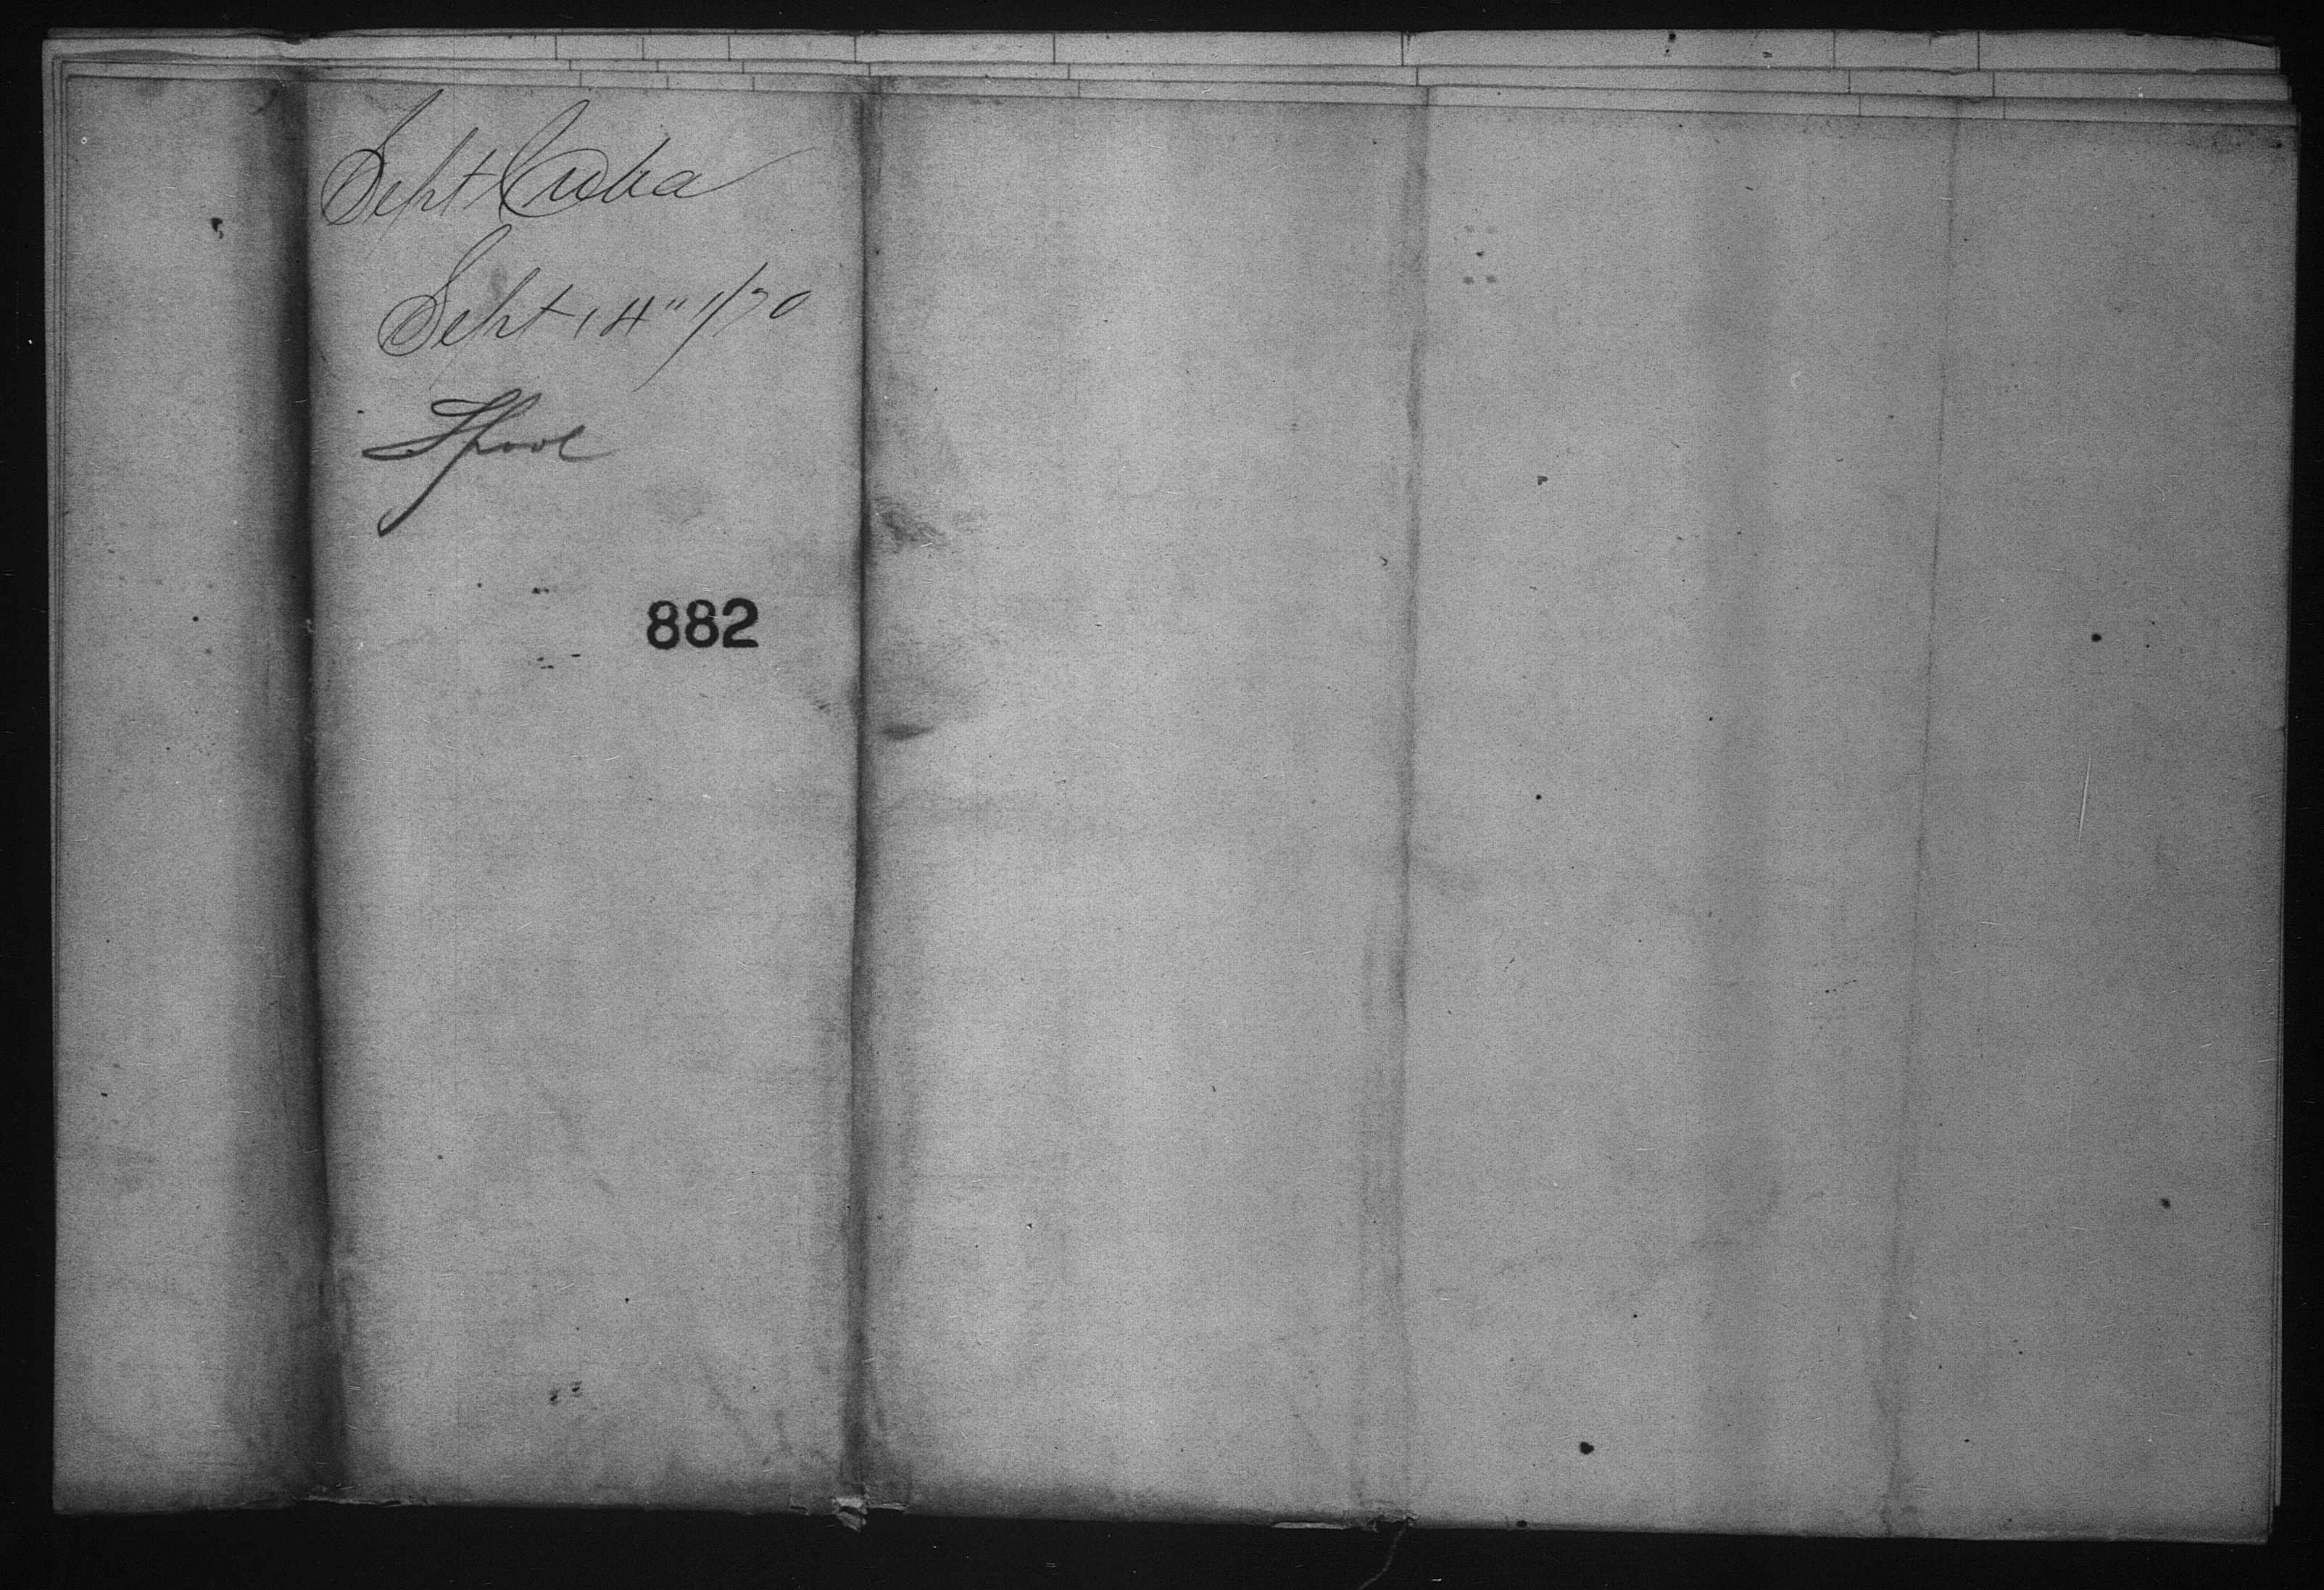 Sept Cuba
Sept 14" 1/70
Spool
882